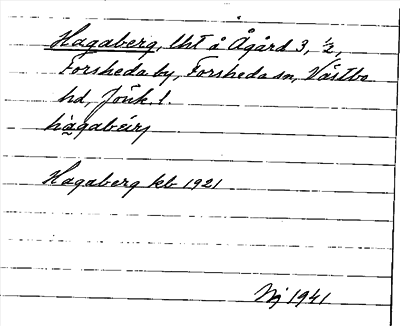 Hagaberg, lht å Ågård 3, ½,
Forsheda by, Forsheda sn, Västbo
hd, Jönk. l.
hàgabærj
Hagaberg kb 1921
Nj 1941